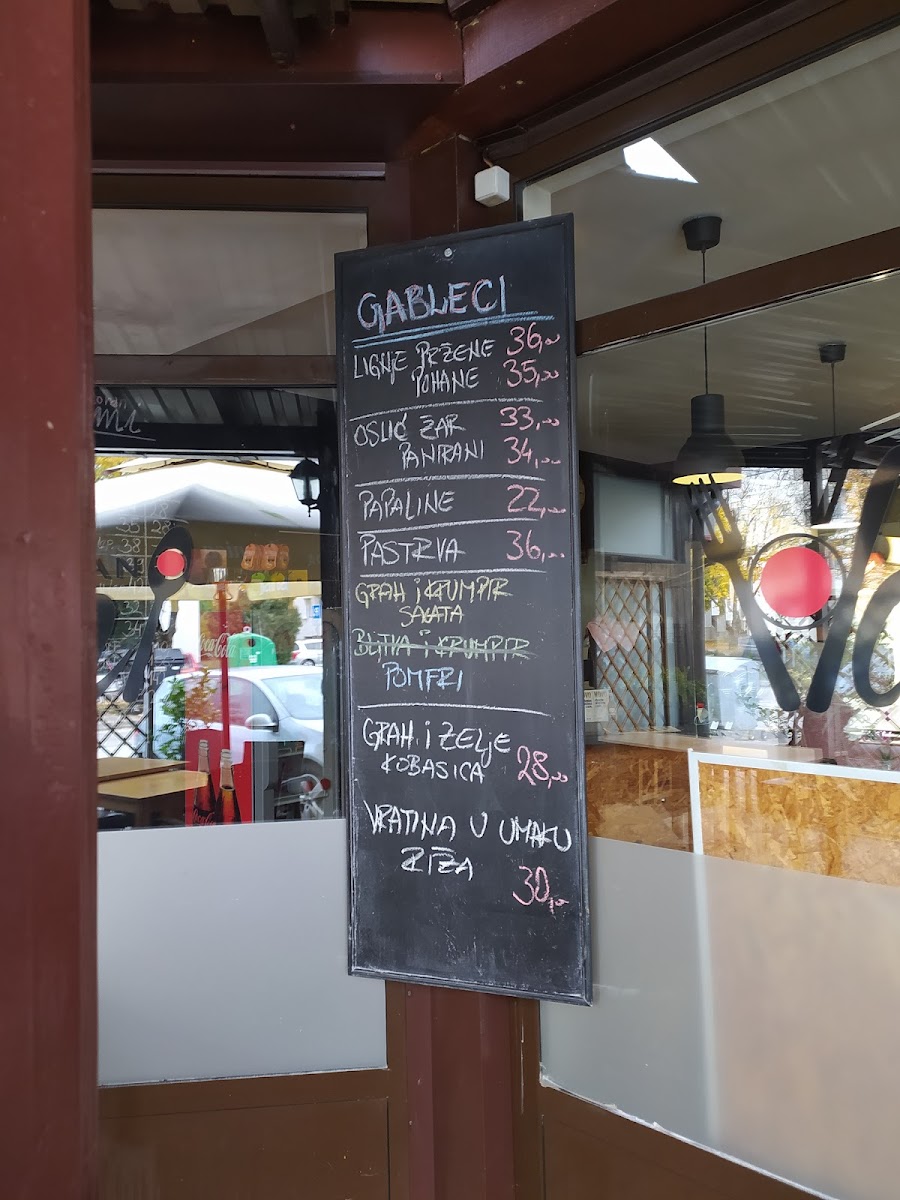 GABLECI
LIGNJE PRŽENE 36,00
POHANE 35,00
OSLIĆ ŽAR 33,00
PANIRANI 34,00
PAPALINE 22,00
PASTRVA 36,00
GRAH I KRUMPIR
SALATA
BLITVA I KRUMPIR
POMFRI
GRAH I ZELJE
KOBASICA 28,00
VRATINA U UMAKU
RIŽA
30,00
Coca-Cola